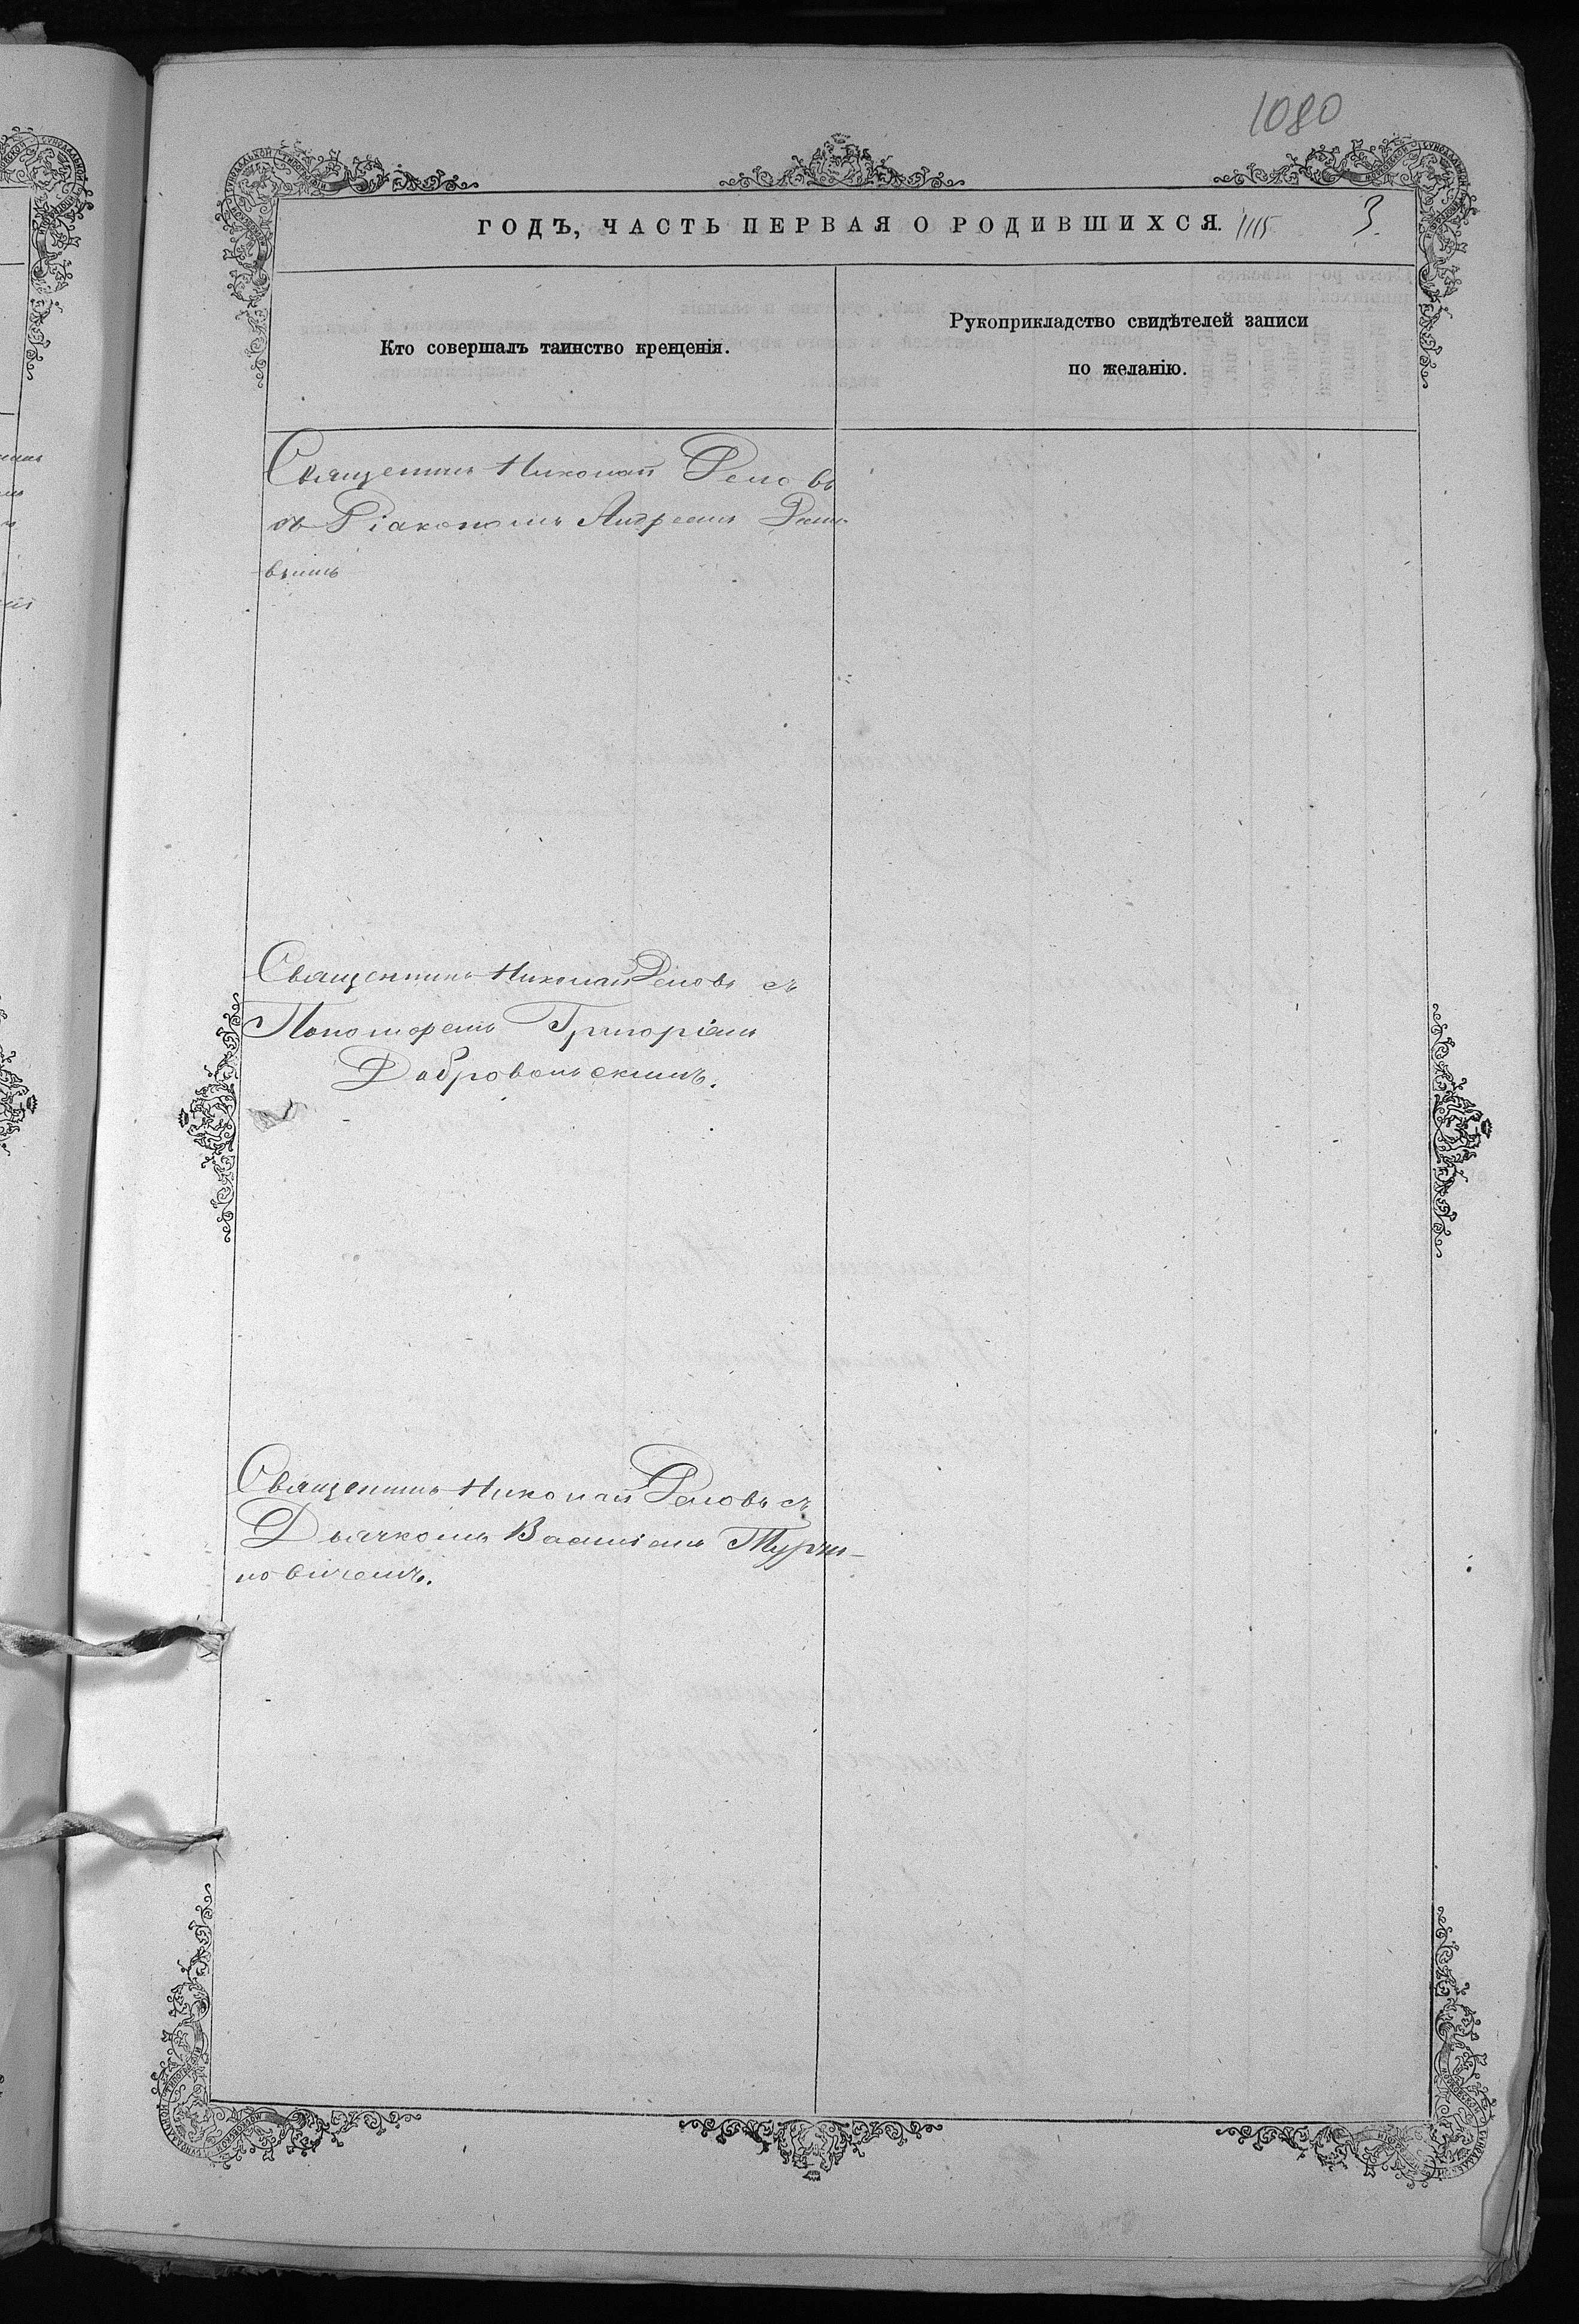 1080
ГОДЪ, ЧАСТЬ ПЕРВАЯ О РОДИВШИХСЯ. 1115 3.
Кто совершалъ таинство крещенія.
Рукоприкладство свидѣтелей записи
по желанію.
Священникъ Николай
съ Діакономъ Андреемъ
вымъ
Священникъ Николай съ
Пономоремъ Григоріемъ
Добровольскимъ.
Священникъ Николай съ
Дьячкомъ Василіемъ Турчи-
новичемъ.